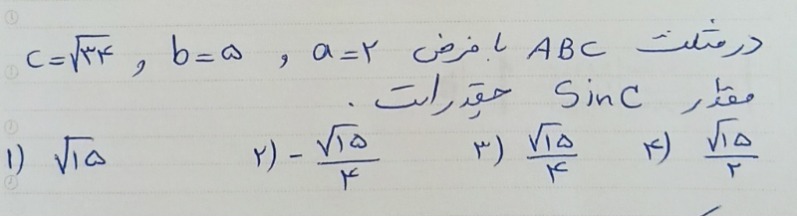 در مثلث ABC با فرض a=۲ , b=۵ , c=√۳۴
مقدار SinC چقدر است .
۱) √۱۵ ۲) -√۱۵/۴ ۳) √۱۵/۴ ۴) √۱۵/۲